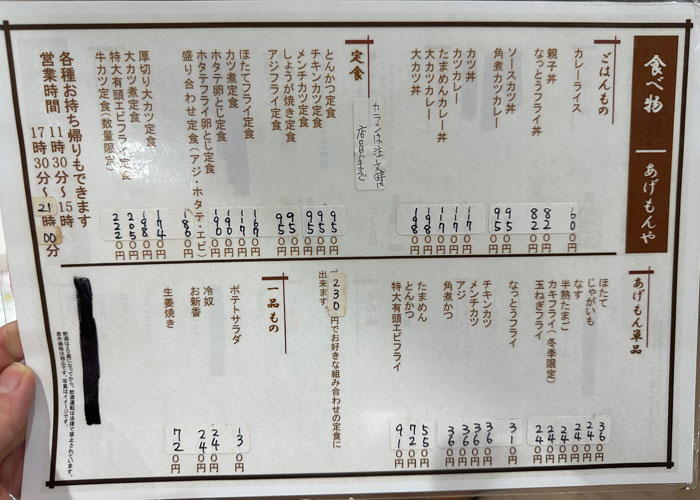 食べ物 あげもんや
ごはんもの
カレーライス 600円
親子丼 820円
なっとうフライ丼 820円
ソースカツ丼 950円
角煮カツカレー 950円
カツ丼 1170円
カツカレー 1170円
たまめんカレー丼 1170円
大カツカレー 1980円
大カツ丼 1980円
カランは注文時に
店員まで
定食
とんかつ定食 950円
チキンカツ定食 950円
メンチカツ定食 950円
しょうが焼き定食 950円
アジフライ定食 950円
ほたてフライ定食
カツ煮定食
ホタテ卵とじ定食
ホタテフライ卵とじ定食
盛り合わせ定食(アジ・ホタテ・エビ)
厚切り大カツ定食 1740円
大カツ煮定食 1980円
特大有頭エビフライ定食 2050円
牛カツ定食(数量限定) 2220円
各種お持ち帰りもできます
営業時間 11時30分〜15時
17時30分〜21時00分
あげもん単品
ほたて 360円
じゃがいも 240円
なす 240円
半熟たまご 240円
カキフライ(冬季限定) 240円
玉ねぎフライ 240円
なっとうフライ 310円
チキンカツ 360円
メンチカツ 360円
アジ 360円
角煮かつ 360円
たまめん 550円
とんかつ 720円
特大有頭エビフライ 910円
230円でお好きな組み合わせの定食に
出来ます。
一品もの
ポテトサラダ 130円
冷奴 240円
お新香 240円
生姜焼き 720円
飲酒は20歳になってから。飲酒運転は法律で禁止されています。
表示価格は税込です。写真はイメージです。